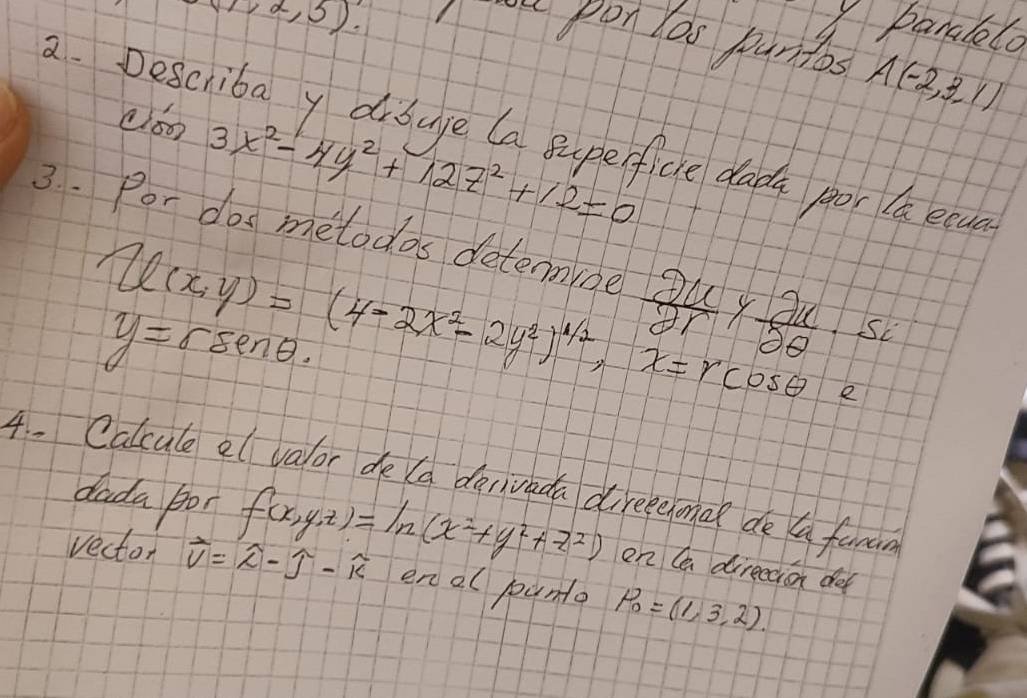 (1, 2, 5).
por los puntos A(-2, 3, 1)
y paralelo
2.- Describa y dibuje la superficie dada por la ecua-
ción 3x² - 4y² + 12z² + 12 = 0
3.- Por dos métodos determine ∂u/∂r y ∂u/∂θ. Si
U(x, y) = (4 - 2x² - 2y²)^1/2, x = r cosθ e
y = r senθ.
4.- Calcule el valor de la derivada direccional de la función
dada por f(x, y, z) = ln(x² + y² + z²) en la dirección del
vector v̂ = î - ĵ - k̂ en el punto P₀ = (1, 3, 2).